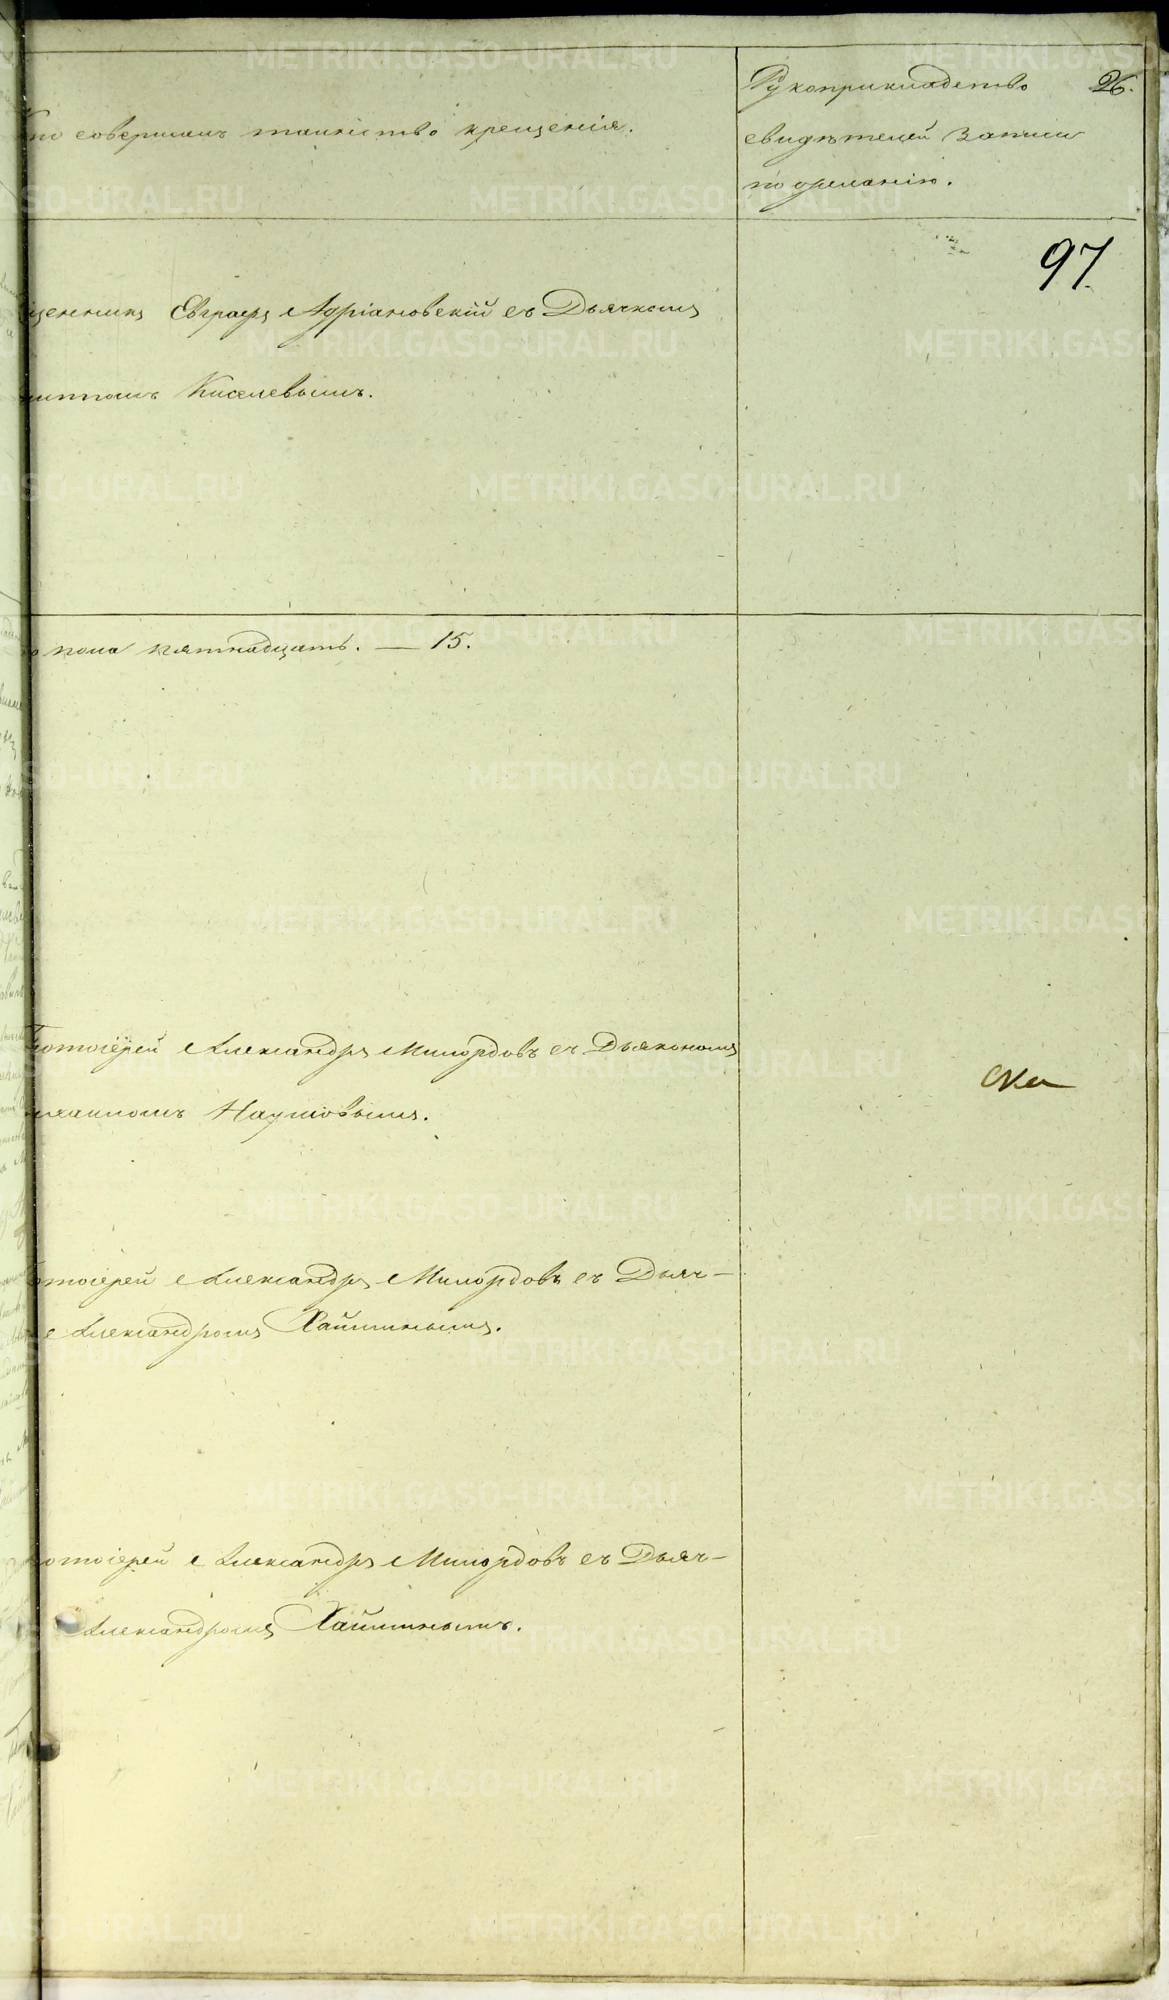 Кто совершалъ таинство крещенія.
Рукоприкладство
26.
свидѣтелей записи
по желанію.
97.
щенникъ Евграфъ Адріановскій съ Дьячкомъ
иппомъ Киселевымъ.
о пола пятнадцать. — 15.
ротоіерей Александръ Милордовъ съ Дьякономъ
ихаиломъ Наумовымъ.
отоіерей Александръ Милордовъ съ Дьяч-
Александромъ Хайминымъ.
ротоіерей Александръ Милордовъ съ Дьяч-
Александромъ Хайминымъ.
METRIKI.GASO-URAL.RU